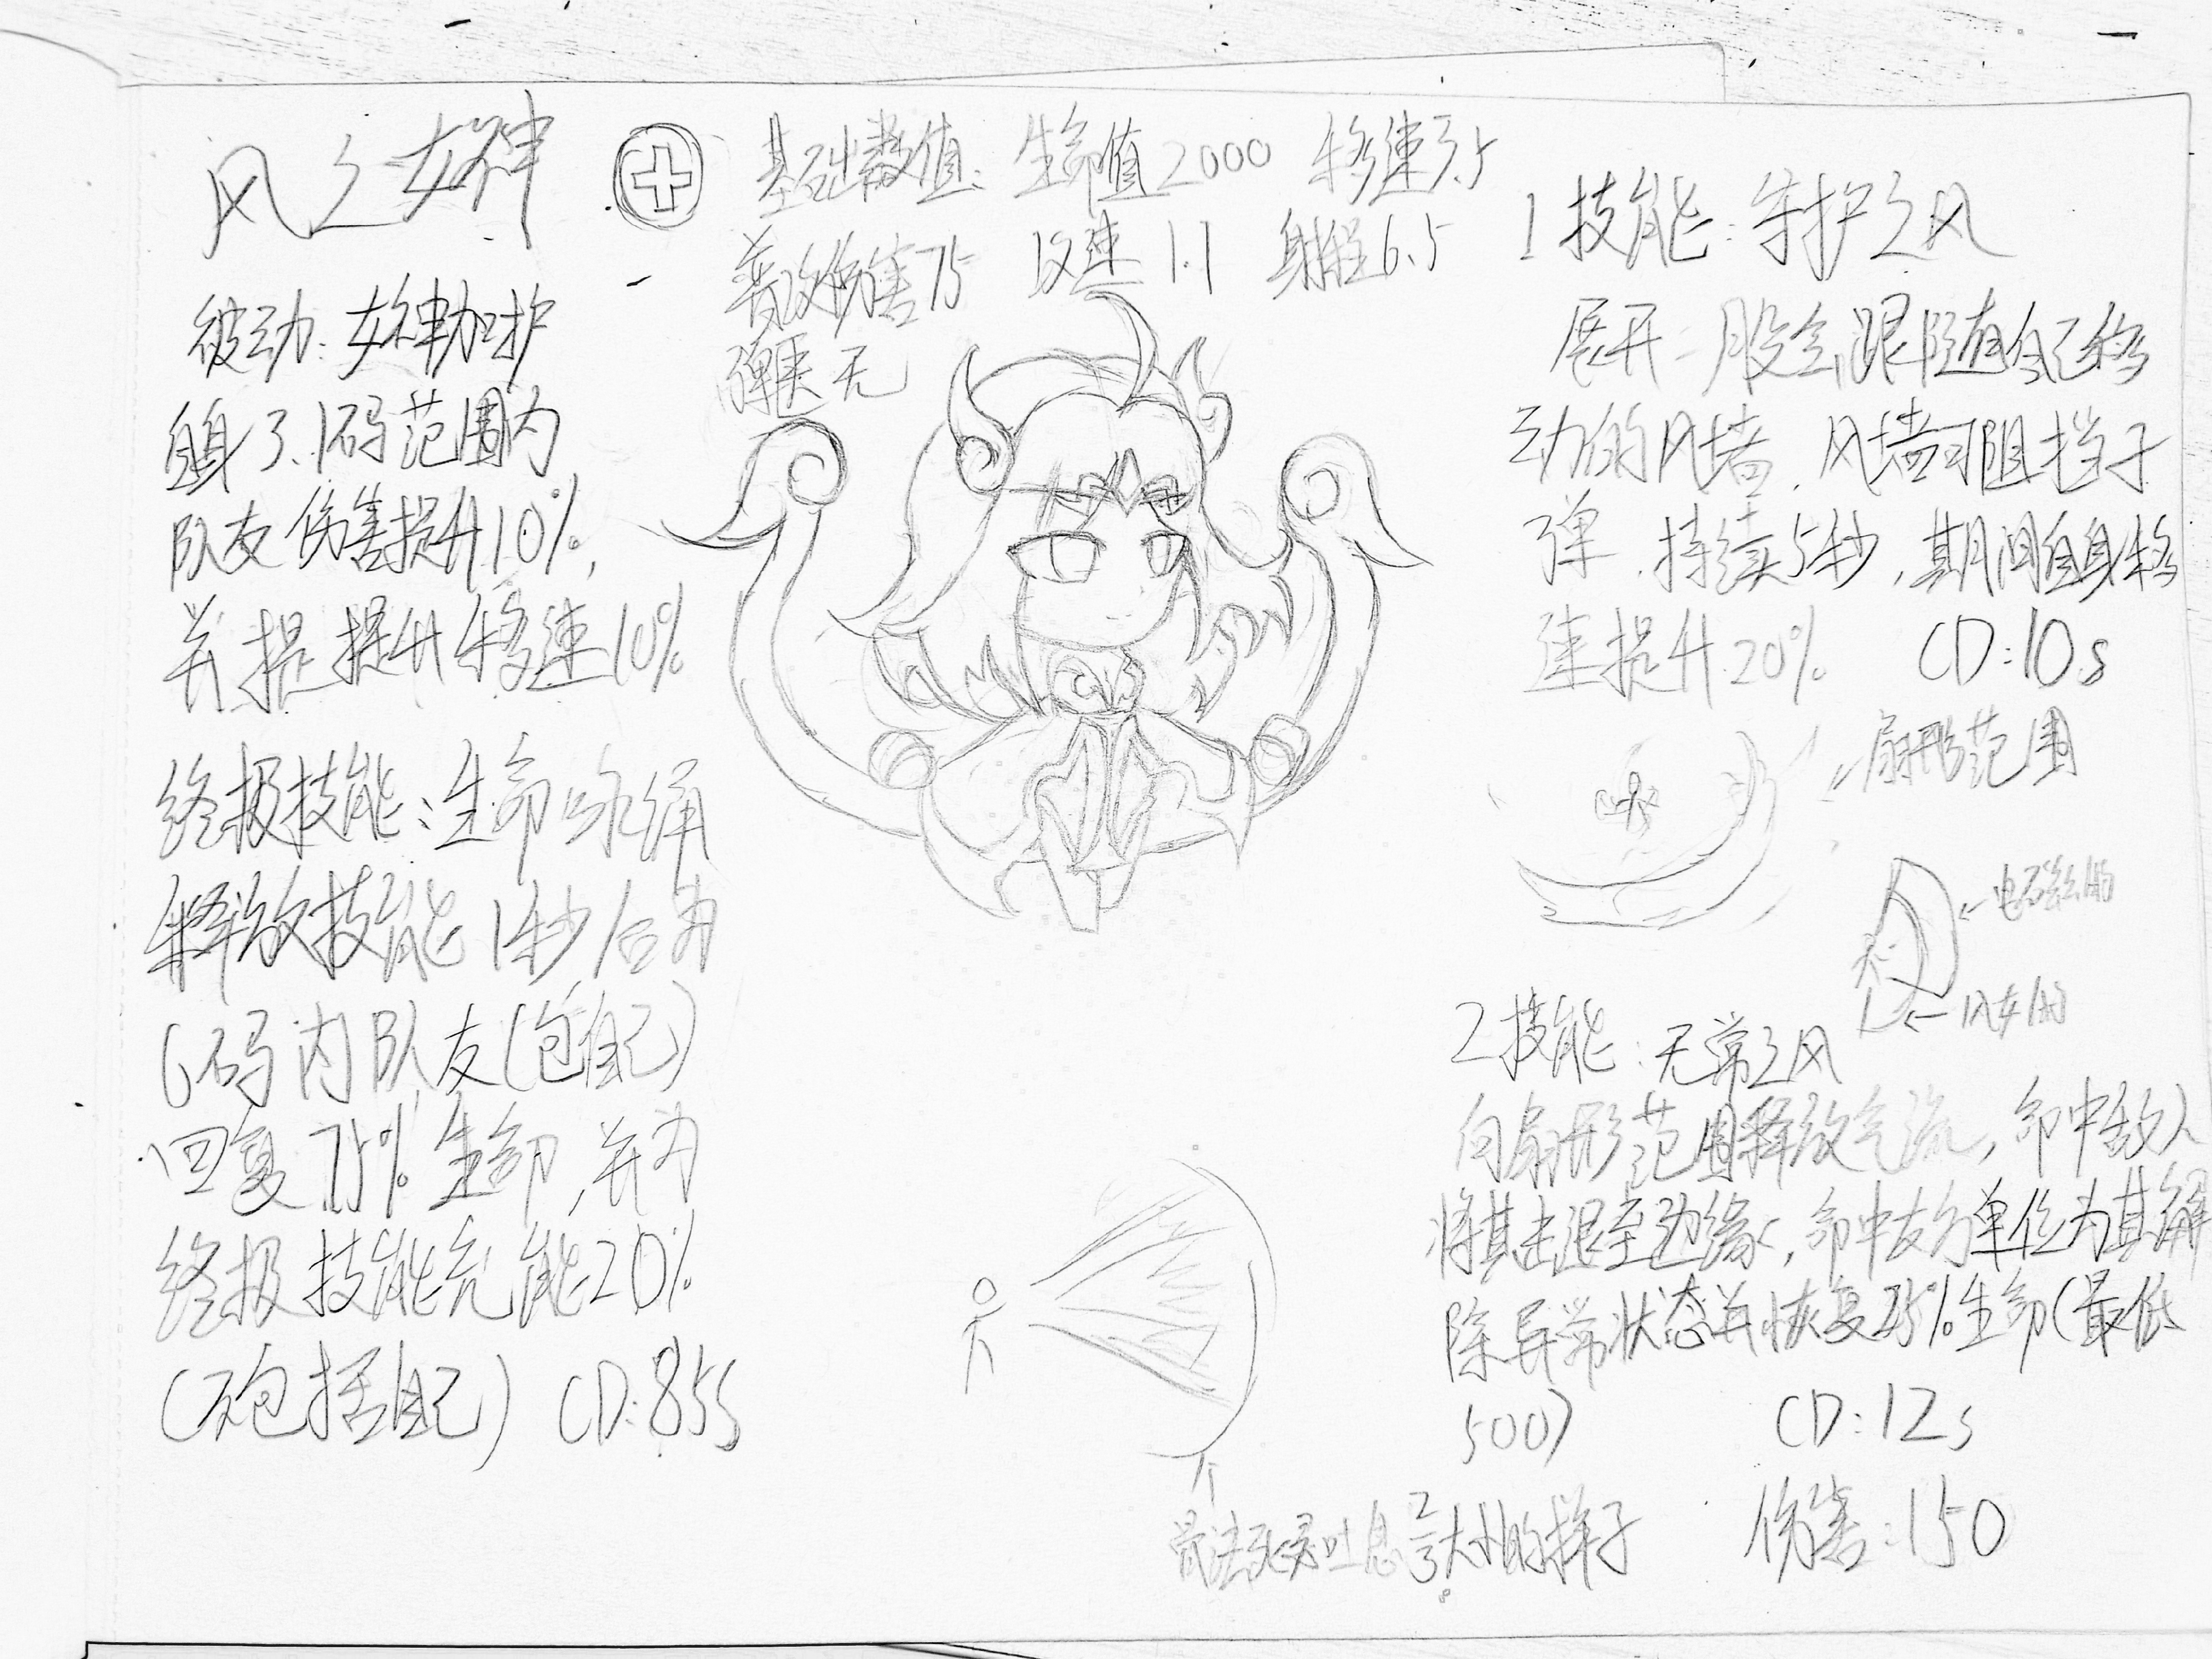 风之女神
基础数值：生命值2000 移速3.5
普攻伤害75 攻速1.1 射程6.5
弹匣无
被动：女神加护
自身3.1码范围内
队友伤害提升10%，
并提提升移速10%
终极技能：生命咏诵
释放技能1秒后为
6码内队友(包自己)
回复75%生命，并为
终极技能充能20%
(不包括自己) CD:85s
1技能：守护之风
展开一股会跟随自己移
动的风墙，风墙可阻挡子
弹，持续5秒，期间自身移
速提升20% CD:10s
←扇形范围
←
←风女的
2技能：无常之风
向扇形范围释放气流，命中敌人
将其击退至边缘，命中友方单位为其解
除异常状态并恢复25%生命(最低
500) CD:12s
伤害：150
骨法死灵吐息2/3大小的样子